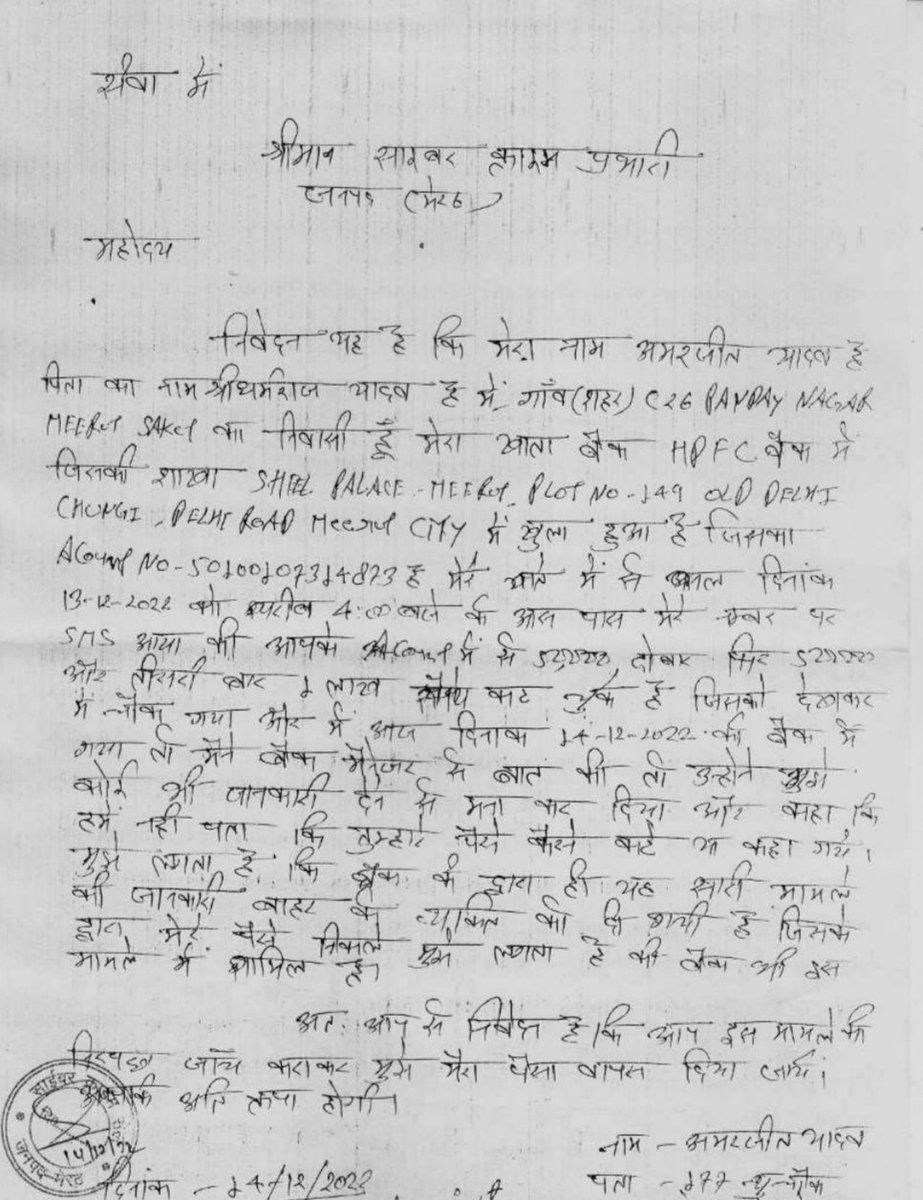 सेवा में
श्रीमान साइबर क्राइम प्रभारी
जनपद (मेरठ)
महोदय
निवेदन यह है कि मेरा नाम अमरजीत यादव है
पिता का नाम श्री धर्मराज यादव है में, गाँव (शहर) C26 PANDAY NAGAR
MEERUT SAKET का निवासी हूँ मेरा खाता बैंक HDFC बैंक में
जिसकी शाखा SHEEL PALACE - MEERUT, PLOT NO - 149 OLD DELHI
CHUNGI, DELHI ROAD MEERUT CITY में खुला हुआ है जिसका
Account NO - 50100107314873 है मेरे खाते में से कल दिनांक
13-12-2022 को करीब 4:00 बजे के आस पास मेरे नम्बर पर
SMS आया की आपके Account में से दोबार फिर
और तीसरी बार 1 लाख रूपये कट चुके है जिसको देखकर
में चौक गया और में आज दिनांक 14-12-2022 को बैंक में
गया तो मैने बैंक मैनेजर से बात की तो उन्होने मुझे
कोई भी जानकारी देने से मना कर दिया और कहा कि
हमें नही पता कि तुम्हारे पैसे कैसे कटे या कहा गये।
मुझे लगता है, कि बैंक के द्वारा ही यह सारी मामले
की जानकारी बाहर के व्यक्ति को दी गयी है जिसके
द्वारा मेरे पैसे निकले मुझे लगता है की बैंक भी इस
मामले में शामिल है।
अतः आप से निवेदन है कि आप इस मामले की
निष्पक्ष जाँच कराकर मुझे मेरा पैसा वापस दिया जाये।
आपकी अति कृपा होगी।
साईबर
जनपद-मेरठ
14/12/22
नाम - अमरजीत यादव
दिनांक - 14/12/2022
पता - 177